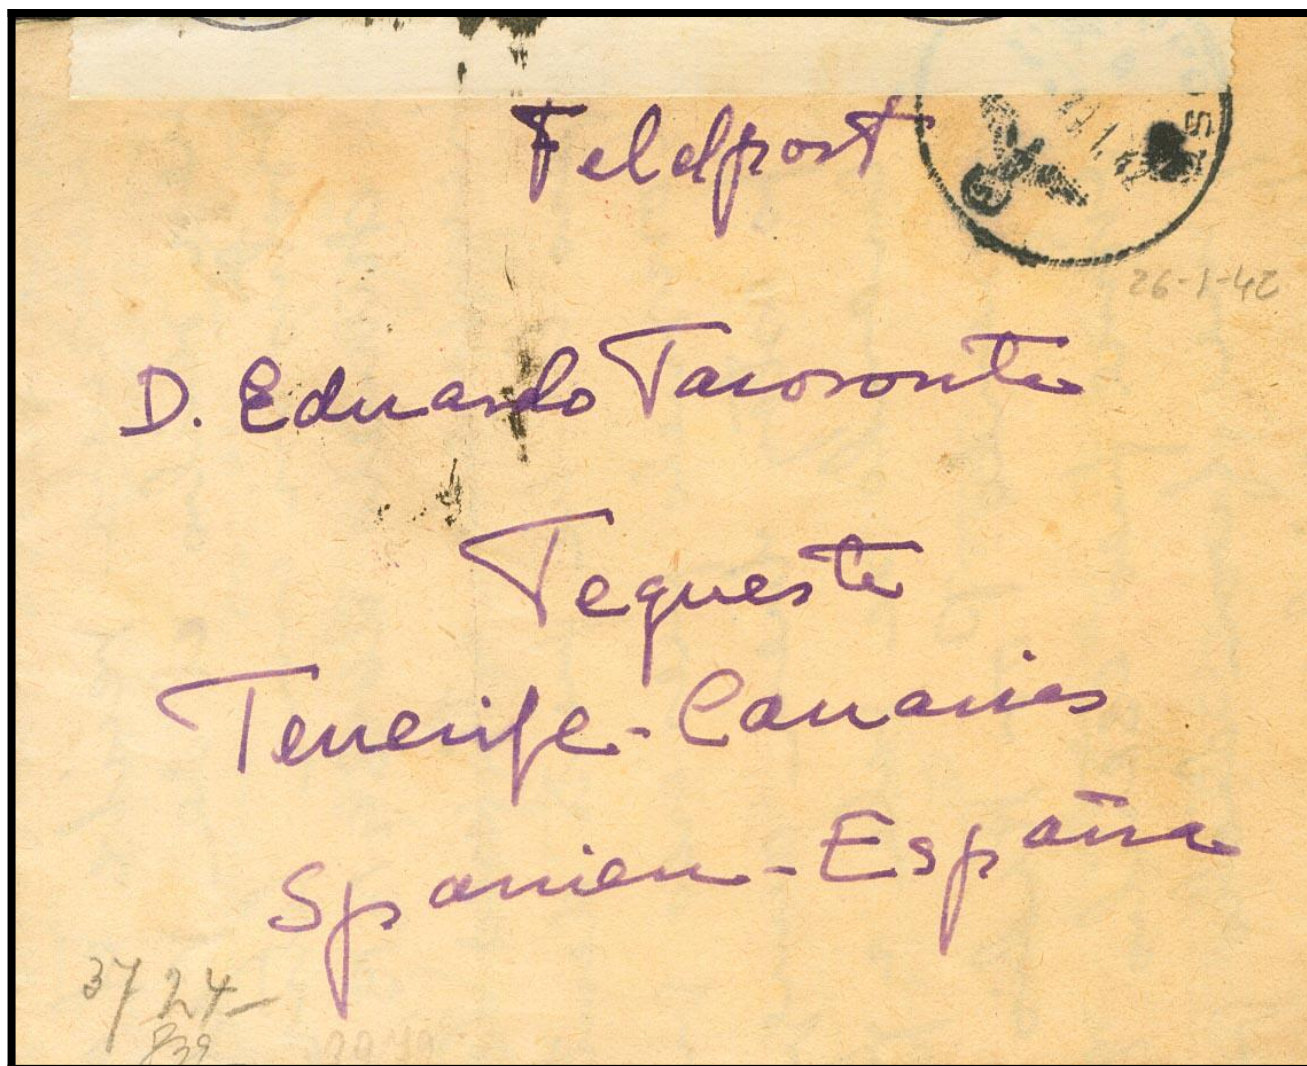 Feldpost
26-1-42
D. Eduardo Tacoronte
Tegueste
Tenerife-Canarias
Spanien-España
3724-
839